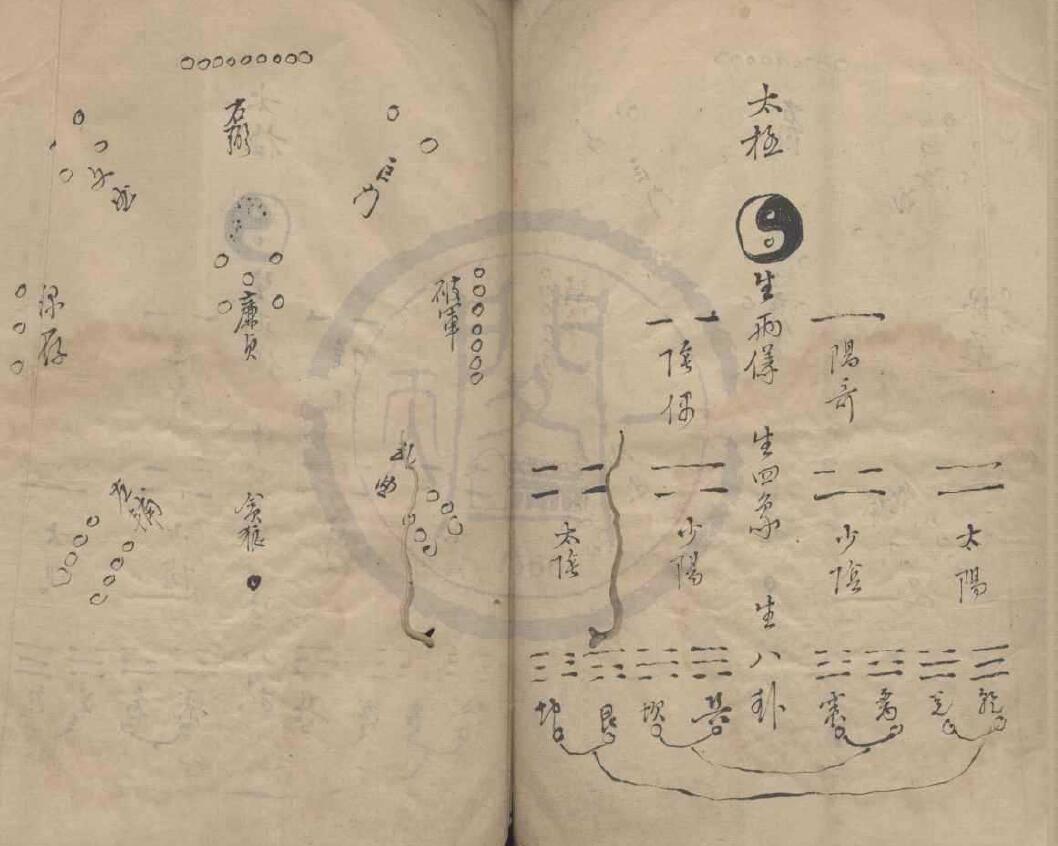 太極
生兩儀
生四象
生
八卦
陽奇
陰偶
太陽
少陰
少陽
太陰
乾
兌
离
震
巽
坎
艮
坤
右弼
廉貞
貪狼
破軍
祿存
武曲
文曲
左輔
巨門